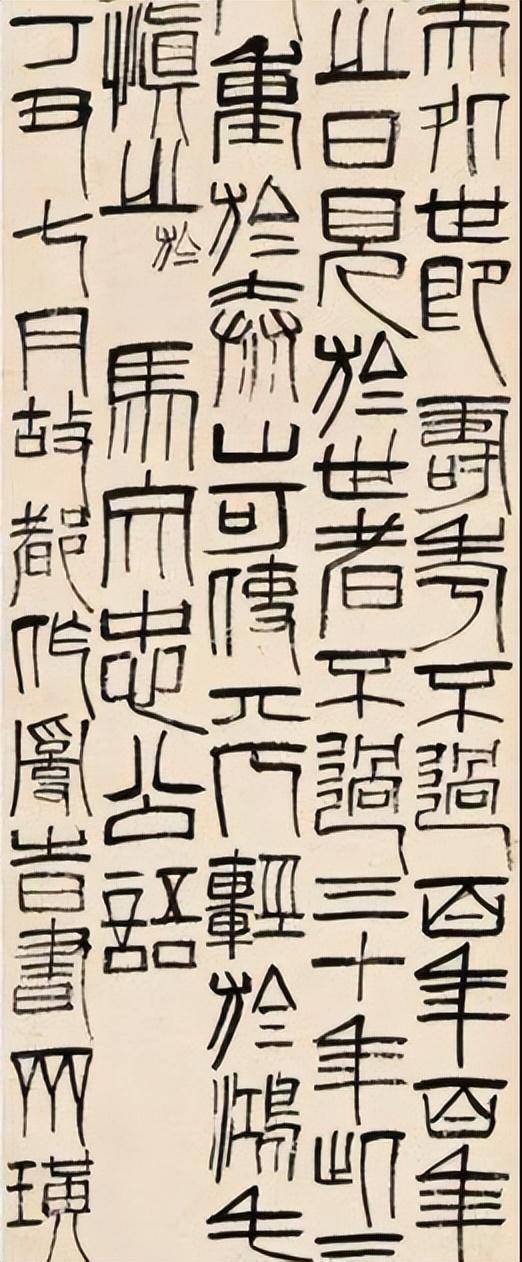 夫処世即壽考不過百年百年
之日見於世者不過三十年此三
重於泰山可使亓人輕於鴻毛
慎之 於 馬文忠公語
丁丑七月故都作亂旹書齊璜